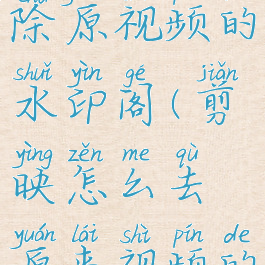 除原视频的
shuǐ yìn gé jiǎn
水印阁(剪
yìng zěn me qù
映怎么去
yuán lái shì pín de
原来视频的